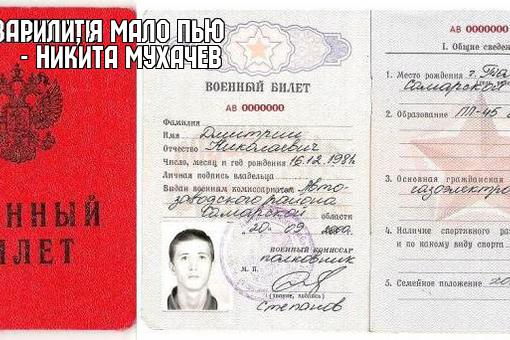 ВАРИЛИТ|Я МАЛО ПЬЮ
- НИКИТА МУХАЧЕВ
ЕННЫЙ
ИЛЕТ
ВОЕННЫЙ БИЛЕТ
АВ 0000000
Фамилия
Имя Дмитрий
Отчество Николаевич
Число, месяц и год рождения 16.12.1981
Личная подпись владельца
Выдан военным комиссариатом Авто-
заводского района
Самарской области
20 09
ВОЕННЫЙ КОМИССАР
полковник
М. П.
(звание, подпись)
Степанов
АВ 0000000
I. Общие сведе
1. Место рождения г.
Самарской
2. Образование ПТУ-45
3. Основная гражданская
газоэлектро
4. Наличие спортивного разря
и по какому виду спорта
5. Семейное положение хо